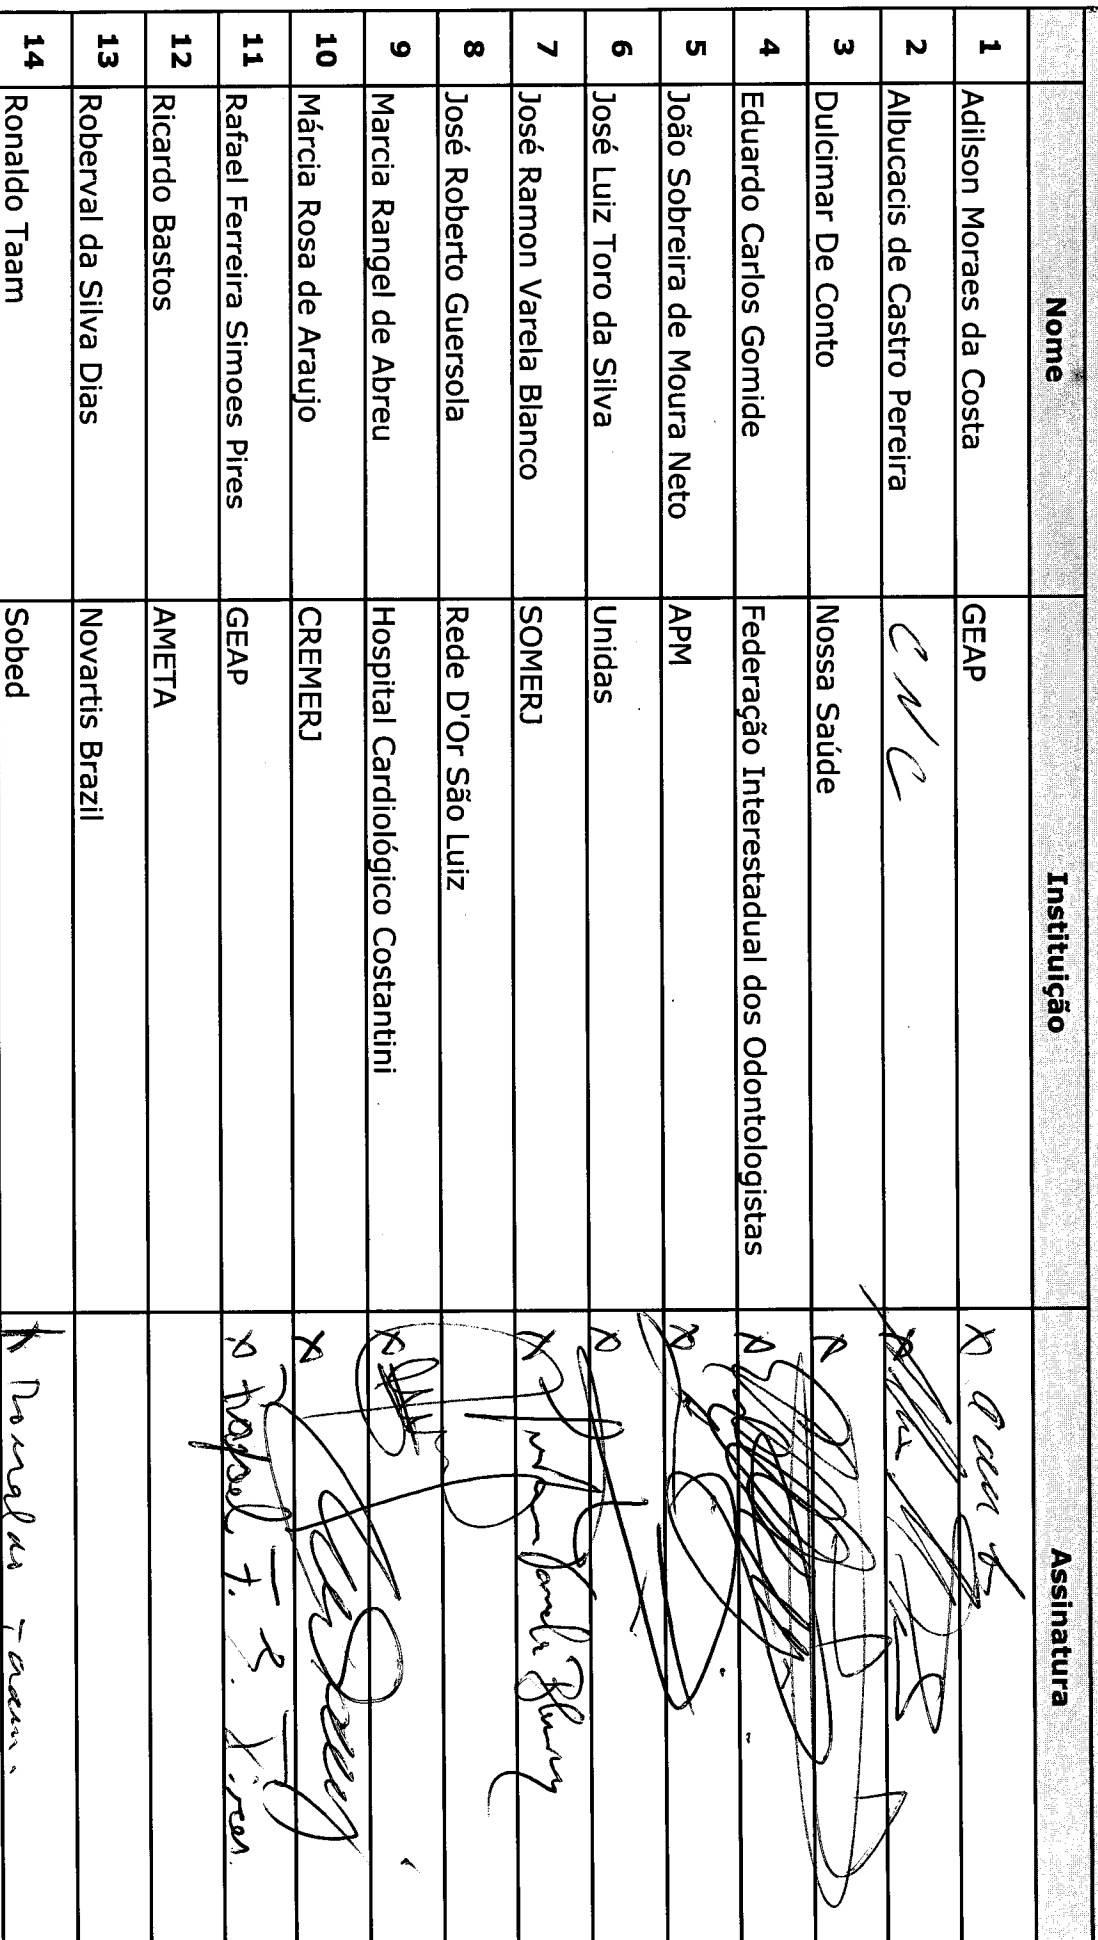 Nome Instituição Assinatura
1 Adilson Moraes da Costa GEAP X
2 Albucacis de Castro Pereira CNC
3 Dulcimar De Conto Nossa Saúde
4 Eduardo Carlos Gomide Federação Interestadual dos Odontologistas X
5 João Sobreira de Moura Neto APM X
6 José Luiz Toro da Silva Unidas X
7 José Ramon Varela Blanco SOMERJ X Varela Blanco
8 José Roberto Guersola Rede D'Or São Luiz
9 Marcia Rangel de Abreu Hospital Cardiológico Costantini X
10 Márcia Rosa de Araujo CREMERJ X
11 Rafael Ferreira Simoes Pires GEAP X Rafael F. S. Pires
12 Ricardo Bastos AMETA
13 Roberval da Silva Dias Novartis Brazil
14 Ronaldo Taam Sobed X Ronaldo Taam